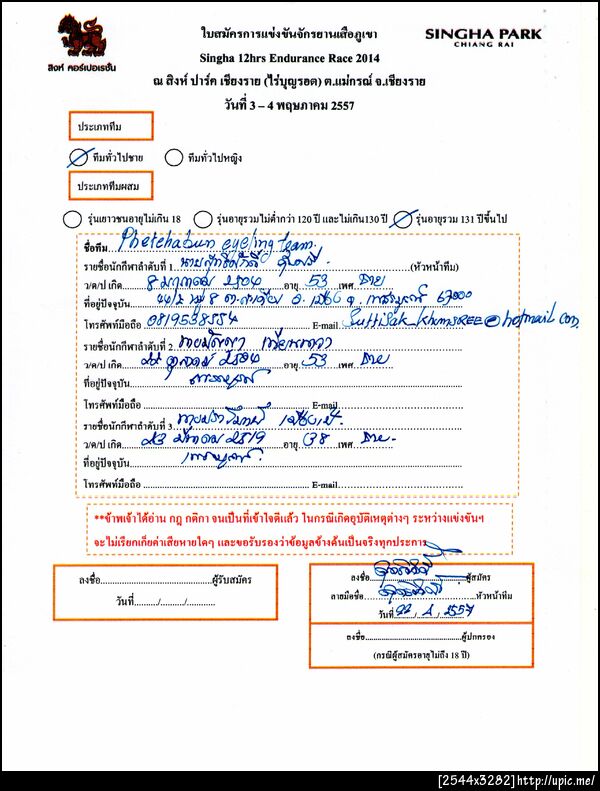 สิงห์ คอร์เปอเรชั่น
ใบสมัครการแข่งขันจักรยานเสือภูเขา
SINGHA PARK
CHIANG RAI
Singha 12hrs Endurance Race 2014
ณ สิงห์ ปาร์ค เชียงราย (ไร่บุญรอด) ต.แม่กรณ์ จ.เชียงราย
วันที่ 3 – 4 พฤษภาคม 2557
ประเภททีม
ทีมทั่วไปชาย ทีมทั่วไปหญิง
ประเภททีมผสม
รุ่นเยาวชนอายุไม่เกิน 18 รุ่นอายุรวมไม่ต่ำกว่า 120 ปี และไม่เกิน130 ปี รุ่นอายุรวม 131 ปีขึ้นไป
ชื่อทีม Phetchabun cycling team.
รายชื่อนักกีฬาลำดับที่ 1. (หัวหน้าทีม)
ว/ด/ป เกิด 8 มกราคม 2504 อายุ 53 เพศ ชาย
ที่อยู่ปัจจุบัน 67000
โทรศัพท์มือถือ 0819538554 E-mail
รายชื่อนักกีฬาลำดับที่ 2
ว/ด/ป เกิด 22 ตุลาคม 2504 อายุ 53 เพศ ชาย
ที่อยู่ปัจจุบัน เพชรบูรณ์
โทรศัพท์มือถือ E-mail
รายชื่อนักกีฬาลำดับที่ 3
ว/ด/ป เกิด 23 2519 อายุ 38 เพศ ชาย
ที่อยู่ปัจจุบัน เพชรบูรณ์
โทรศัพท์มือถือ E-mail
**ข้าพเจ้าได้อ่าน กฎ กติกา จนเป็นที่เข้าใจดีแล้ว ในกรณีเกิดอุบัติเหตุต่างๆ ระหว่างแข่งขันฯ
จะไม่เรียกเก็บค่าเสียหายใดๆ และขอรับรองว่าข้อมูลข้างต้นเป็นจริงทุกประการ
ลงชื่อ ผู้รับสมัคร
วันที่ / / /
ลงชื่อ ผู้สมัคร
ลายมือชื่อ หัวหน้าทีม
วันที่ 22 / 4 / 2557
ลงชื่อ ผู้ปกครอง
(กรณีผู้สมัครอายุไม่ถึง 18 ปี)
[2544x3282]http://upic.me/